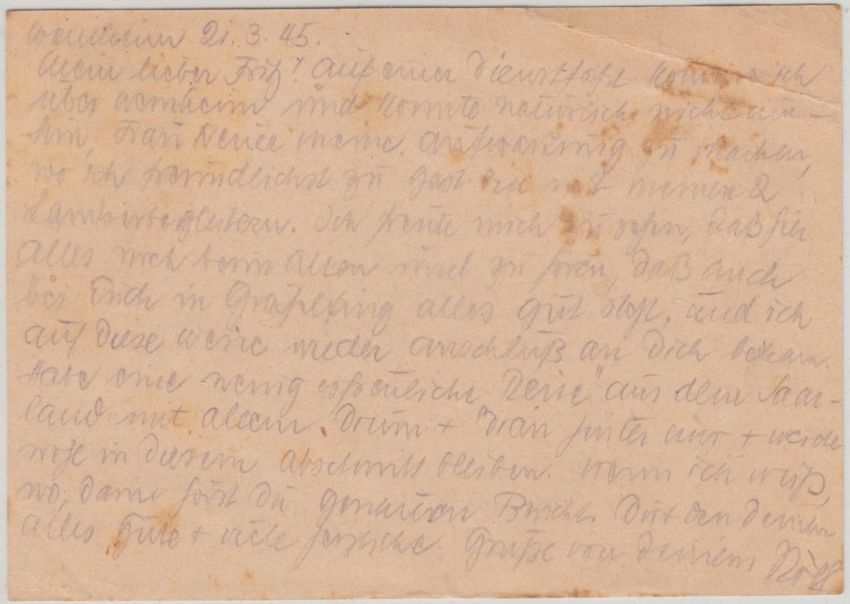 Weinheim 21.3.45.
Mein lieber Fritz! Auf einer Dienstfahrt komme ich
über Weinheim und konnte natürlich nicht um-
hin, Frau Neuer meine Aufwartung zu machen,
wo ich freundlichst zu Gast bin mit meinen 2
Kampfbegleitern. Ich freute mich zu sehen, daß hier
alles noch beim Alten und zu hören, daß auch
bei Euch in Gräfelfing alles gut steht, und ich
auf diese Weise wieder Anschluß an Dich bekam.
Habe eine wenig erfreuliche "Reise" aus dem Saar-
land mit allem Drum + Dran hinter mir + werde
in diesem Abschnitt bleiben. Wenn ich weiß,
wo, dann hörst Du genauen Bericht. Dir + den Deinen
alles Gute + viele herzliche Grüße von Deinem Rolf